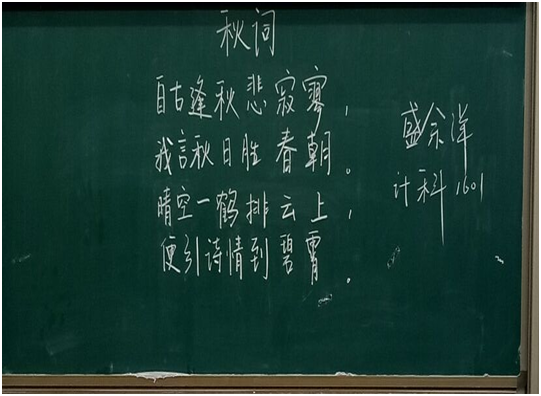 秋词
自古逢秋悲寂寥，
我言秋日胜春朝。
晴空一鹤排云上，
便引诗情到碧霄。
盛余洋
计科1601